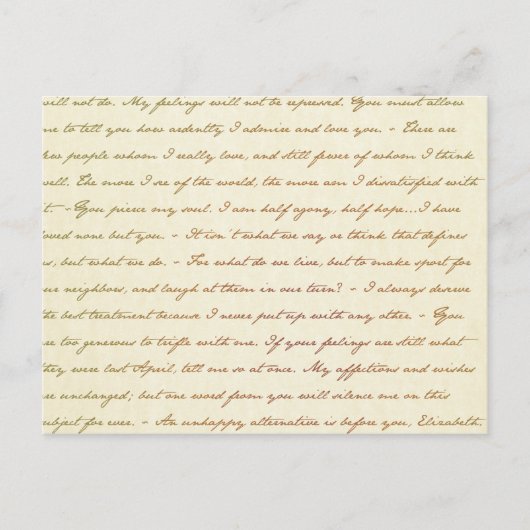 will not do. My feelings will not be repressed. You must allow
me to tell you how ardently I admire and love you. ~ There are
few people whom I really love, and still fewer of whom I think
well. The more I see of the world, the more am I dissatisfied with
it. ~ You pierce my soul. I am half agony, half hope...I have
loved none but you. ~ It isn't what we say or think that defines
us, but what we do. ~ For what do we live, but to make sport for
our neighbors, and laugh at them in our turn? ~ I always deserve
the best treatment because I never put up with any other. ~ You
are too generous to trifle with me. If your feelings are still what
they were last April, tell me so at once. My affections and wishes
are unchanged; but one word from you will silence me on this
subject for ever. ~ An unhappy alternative is before you, Elizabeth.